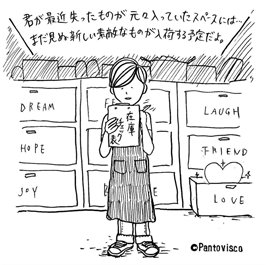 君が最近失ったものが元々入っていたスペースには…
まだ見ぬ新しい素敵なものが入荷する予定だよ。
DREAM
LAUGH
在庫
チェック
表
HOPE
FRIEND
JOY
LOVE
©Pantovisco